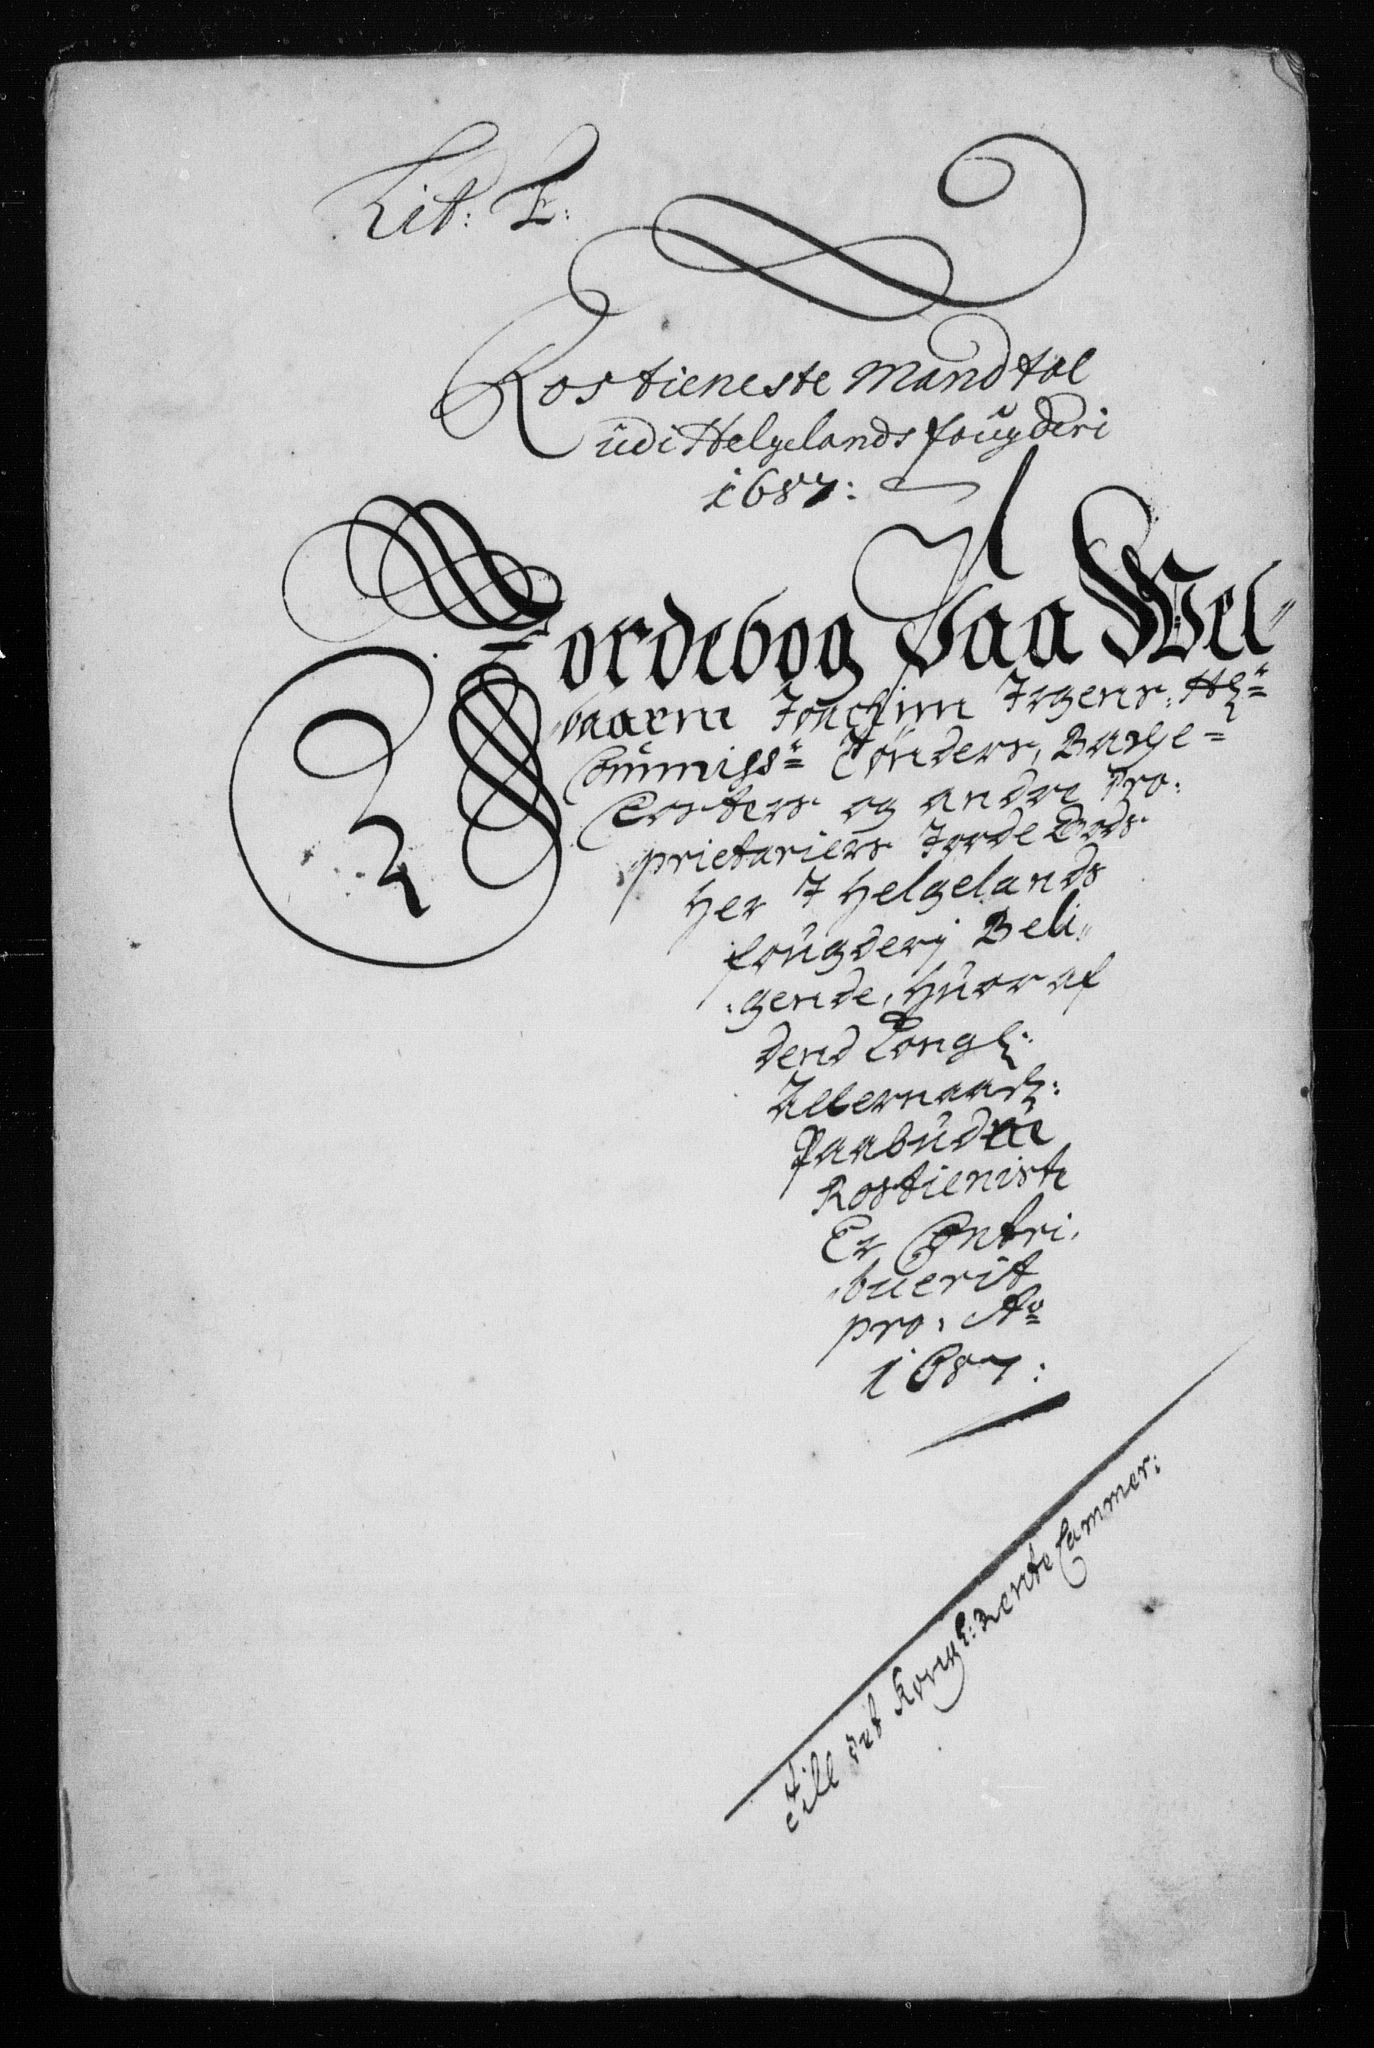 Lit: E:
Rostieneste Mandtal
udi Helgelands fougderi
1687:
Jordebog Paa Wel-
baarne Jochim Irgens, Hr
Commiss: Tønders, Barge-
Costers og andre Pro-
prietariers Jorde Gods
her I Helgelands
fougderj Beli-
gende, huor af
dend Kongl:
Allernaadr:
Paabudne
Rostieniste
Er Contri-
buerit
pro: Ao
1687:
Till det Kongl: Rente Cammer: